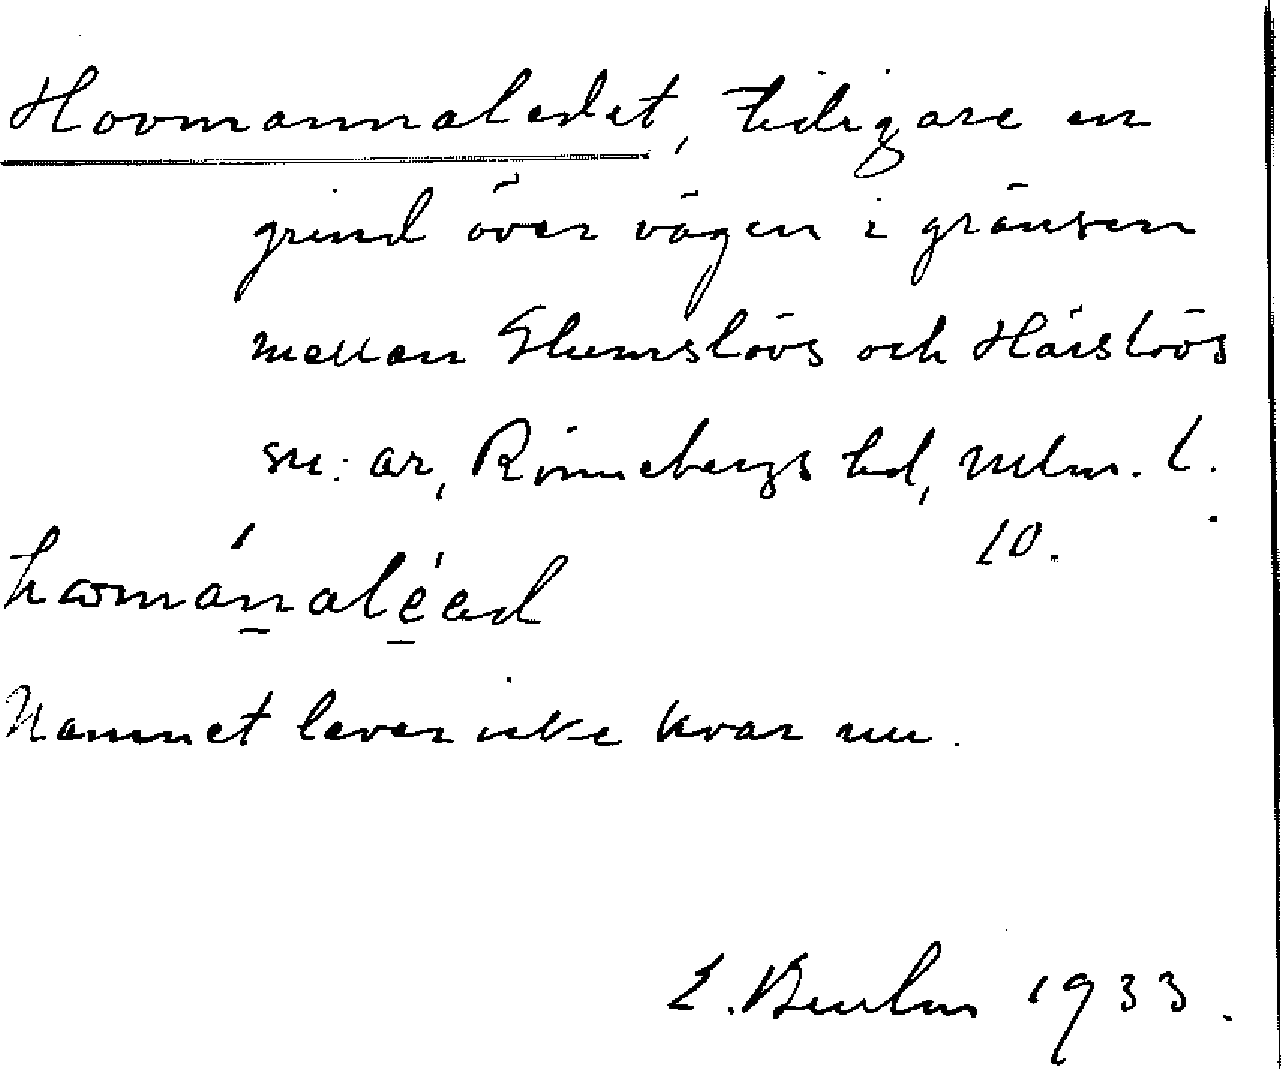 Hovmannaledet, tidigare en
grind över vägen i gränsen
mellan Glumslövs och Härslövs
sn:ar, Rönnebergs hd, Mlm. l.
10.
Namnet lever icke kvar nu.
1933.